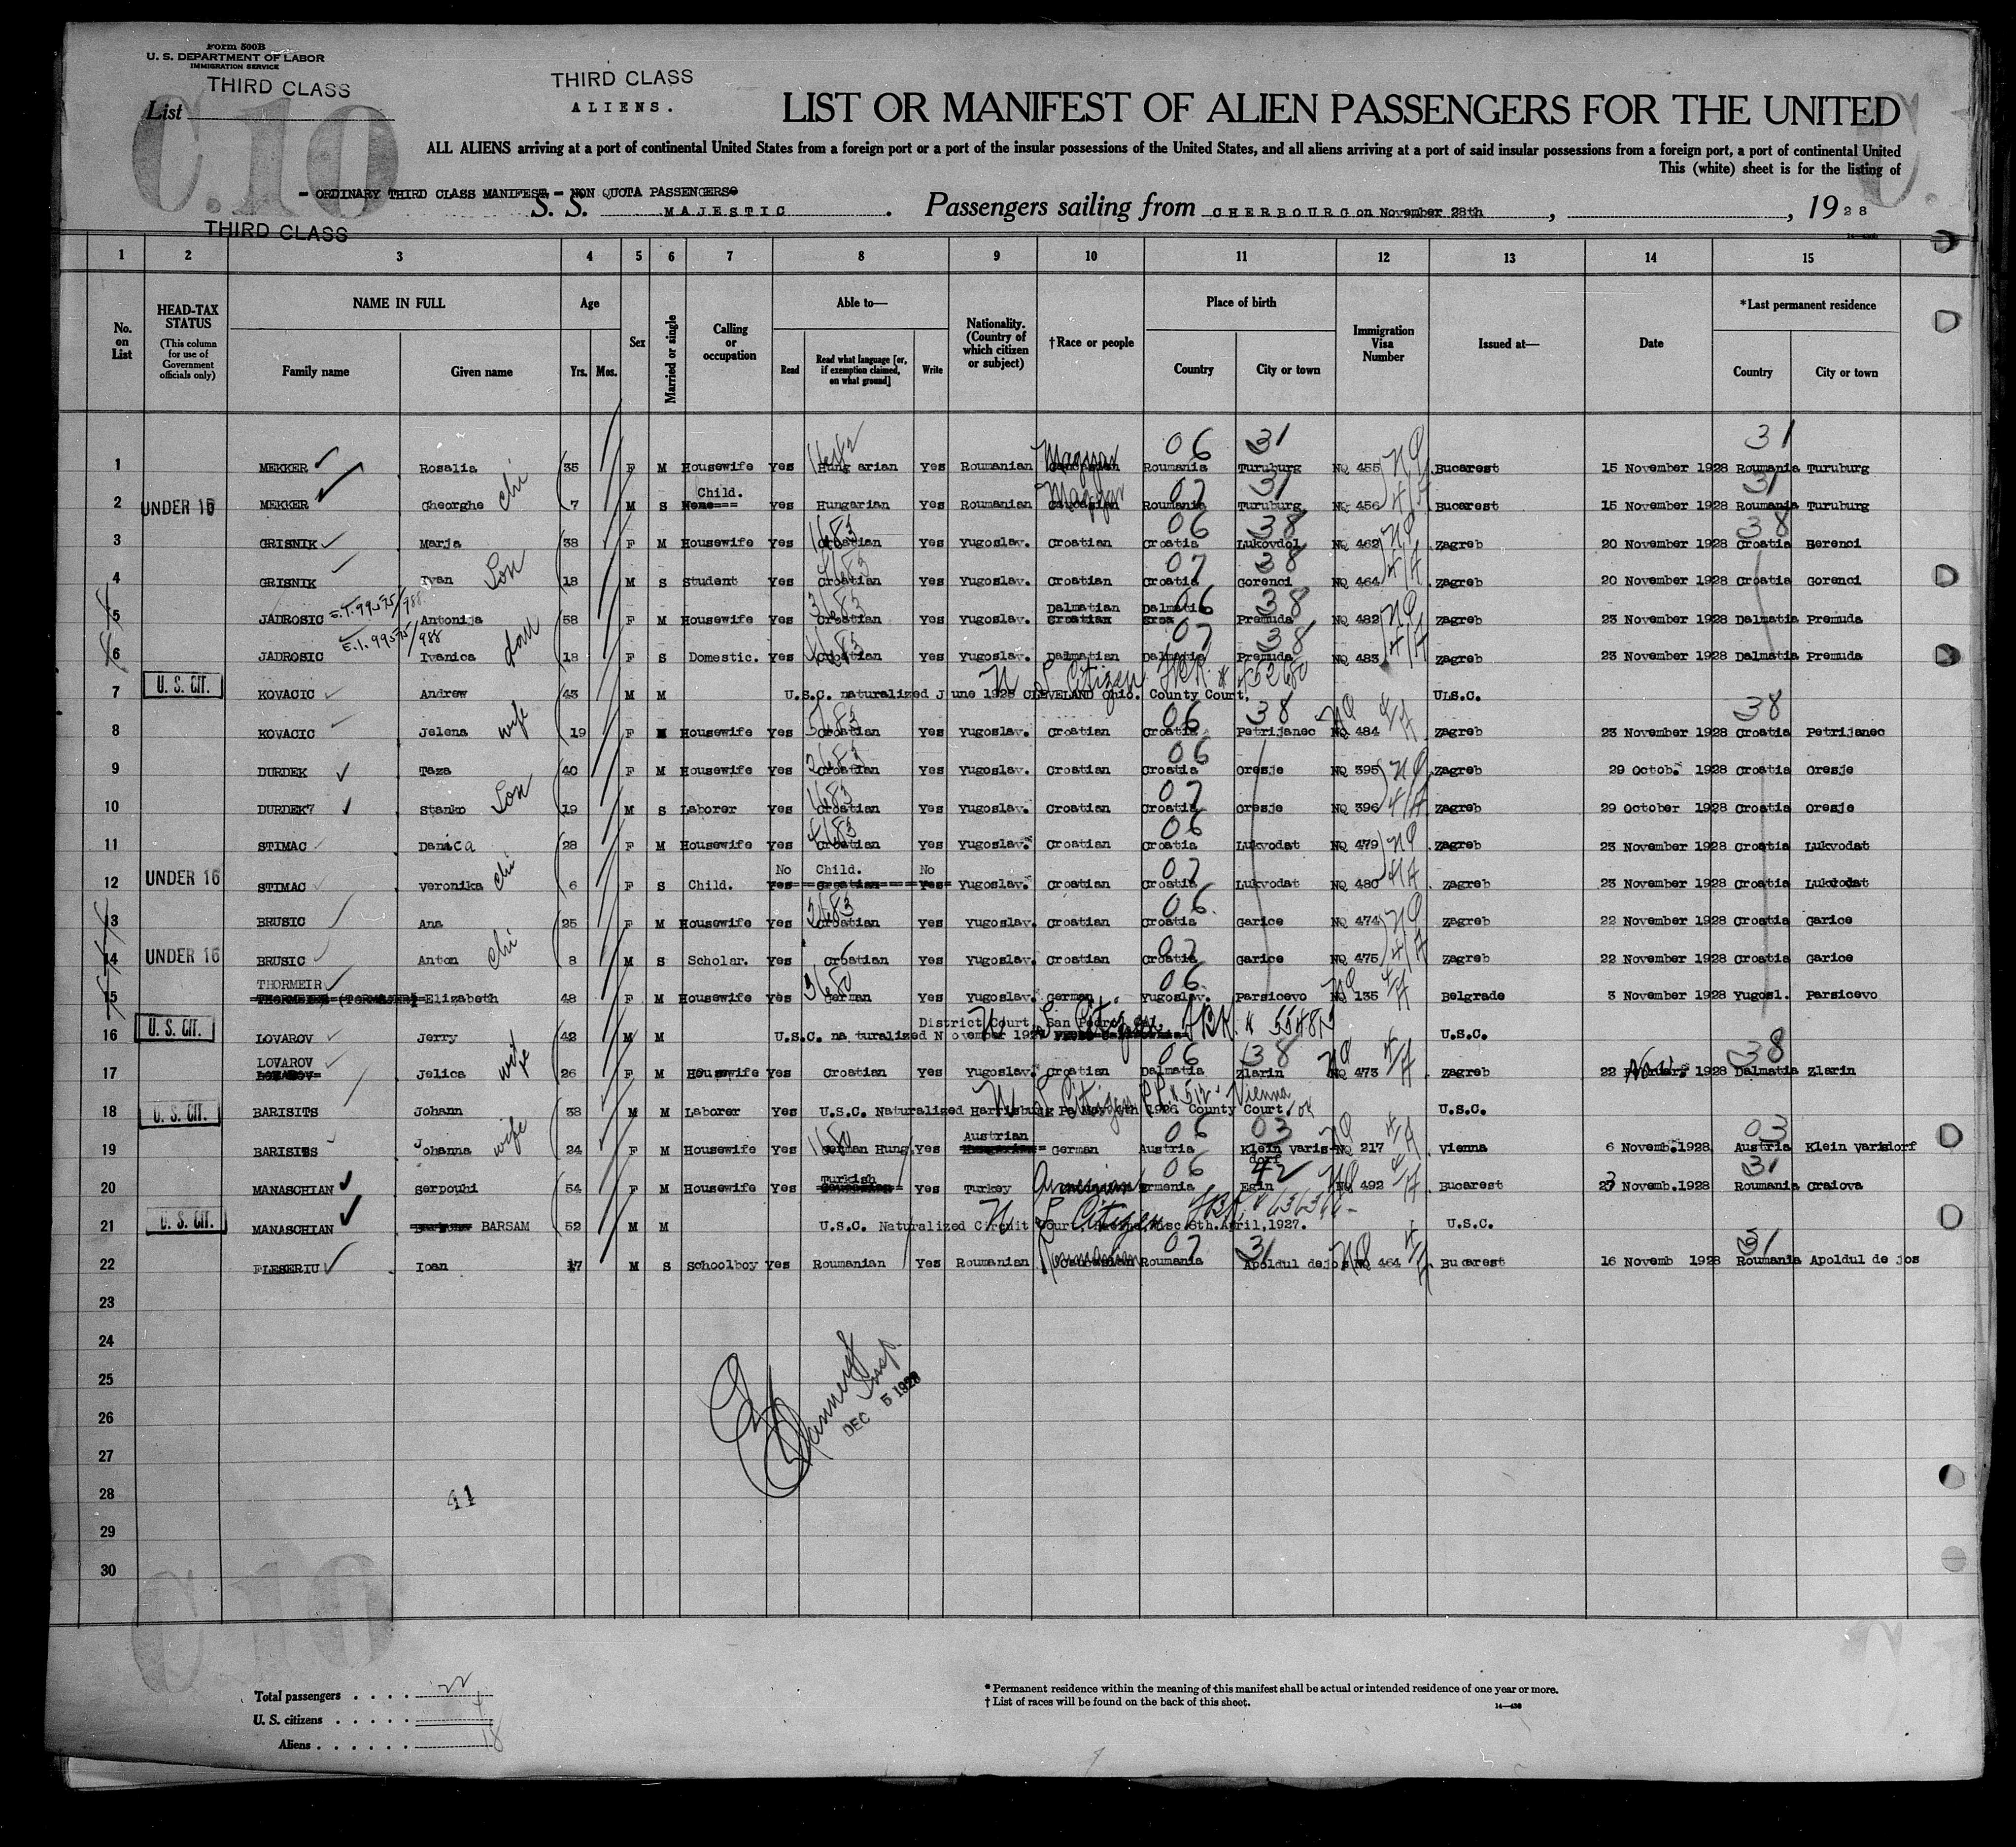 Form 500B
U. S. DEPARTMENT OF LABOR
IMMIGRATION SERVICE
THIRD CLASS
List
C.10
THIRD CLASS
ALIENS.
LIST OR MANIFEST OF ALIEN PASSENGERS FOR THE UNITED
ALL ALIENS arriving at a port of continental United States from a foreign port or a port of the insular possessions of the United States, and all aliens arriving at a port of said insular possessions from a foreign port, a port of continental United
This (white) sheet is for the listing of
- ORDINARY THIRD CLASS MANIFEST - NON QUOTA PASSENGERS
S. S. MAJESTIC. Passengers sailing from CHERBOURG on November 28th, , 1928
THIRD CLASS
1 2 3 4 5 6 7 8 9 10 11 12 13 14 15
No. on List
HEAD-TAX STATUS
(This column for use of Government officials only)
NAME IN FULL
Family name Given name
Age
Yrs. Mos.
Sex
Married or single
Calling or occupation
Able to—
Read Read what language [or, if exemption claimed, on what ground] Write
Nationality. (Country of which citizen or subject)
†Race or people
Place of birth
Country City or town
Immigration Visa Number
Issued at—
Date
*Last permanent residence
Country City or town
06 31 31
1 MEKKER Rosalia 35 F M Housewife Yes Hungarian Yes Roumanian Magyar Roumania Turuburg NQ 455 Bucarest 15 November 1928 Roumania Turuburg
2 UNDER 16 MEKKER Gheorghe chi 7 M S Child. None Yes Hungarian Yes Roumanian Magyar Roumania Turuburg NQ 456 Bucarest 15 November 1928 Roumania Turuburg
3 GRISNIK Marja 38 F M Housewife Yes Croatian Yes Yugoslav. Croatian Croatia Lukovdol NQ 462 Zagreb 20 November 1928 Croatia Gerenci
4 GRISNIK Ivan Son 18 M S Student Yes Croatian Yes Yugoslav. Croatian Croatia Gorenci NQ 464 Zagreb 20 November 1928 Croatia Gorenci
5 JADROSIC Antonija 58 F M Housewife Yes Croatian Yes Yugoslav. Dalmatian Croatian Dalmatia Premuda NQ 482 Zagreb 23 November 1928 Dalmatia Premuda
6 JADROSIC Ivanica 18 F S Domestic. Yes Croatian Yes Yugoslav. Dalmatian Dalmatia Premuda NQ 483 Zagreb 23 November 1928 Dalmatia Premuda
7 U. S. CIT. KOVACIC Andrew 43 M M U.S.C. naturalized June 1925 CLEVELAND Ohio. County Court. U.S.C.
8 KOVACIC Jelena wife 19 F M Housewife Yes Croatian Yes Yugoslav. Croatian Croatia Petrijanec NQ 484 Zagreb 23 November 1928 Croatia Petrijanec
9 DURDEK Taza 40 F M Housewife Yes Croatian Yes Yugoslav. Croatian Croatia Oresje NQ 395 Zagreb 29 Octob. 1928 Croatia Oresje
10 DURDEK Stanko Son 19 M S Laborer Yes Croatian Yes Yugoslav. Croatian Croatia Oresje NQ 396 Zagreb 29 October 1928 Croatia Oresje
11 STIMAC Danica 28 F M Housewife Yes Croatian Yes Yugoslav. Croatian Croatia Lukvodat NQ 479 Zagreb 23 November 1928 Croatia Lukvodat
No Child. No
12 UNDER 16 STIMAC Veronika chi 6 F S Child. Yes Croatian Yes Yugoslav. Croatian Croatia Lukvodat NQ 480 Zagreb 23 November 1928 Croatia Lukvodat
13 BRUSIC Ana 25 F M Housewife Yes Croatian Yes Yugoslav. Croatian Croatia Garice NQ 474 Zagreb 22 November 1928 Croatia Garice
14 UNDER 16 BRUSIC Anton chi 8 M S Scholar. Yes Croatian Yes Yugoslav. Croatian Croatia Garice NQ 475 Zagreb 22 November 1928 Croatia Garice
15 THORMEIR Elizabeth 48 F M Housewife Yes German Yes Yugoslav. German Yugoslav. Parsicevo NQ 135 Belgrade 3 November 1928 Yugosl. Parsicevo
District Court, San Pedro Cal.
16 U. S. CIT. LOVAROV Jerry 42 M M U.S.C. naturalized November U.S.C.
LOVAROV
17 Jelica wife 26 F M Housewife Yes Croatian Yes Yugoslav. Croatian Dalmatia Zlarin NQ 473 Zagreb 22 Nov. 1928 Dalmatia Zlarin
18 U. S. CIT. BARISITS Johann 38 M M Laborer Yes U.S.C. Naturalized Harrisburg Pa 1926 County Court. U.S.C.
19 BARISITS Johanna wife 24 F M Housewife Yes German Hung. Yes Austrian German Austria Klein Varisdorf NQ 217 Vienna 6 Novemb. 1928 Austria Klein Varisdorf
20 MANASCHIAN Serpouhi 54 F M Housewife Yes Turkish Yes Turkey Armenian Armenia Egin NQ 492 Bucarest 23 Novemb. 1928 Roumania Craiova
21 U. S. CIT. MANASCHIAN BARSAM 52 M M U.S.C. Naturalized Circuit Court 6th. April, 1927. U.S.C.
22 FLESERIU Ioan 17 M S Schoolboy Yes Roumanian Yes Roumanian Roumanian Roumania Apoldul de jos NQ 464 Bucarest 16 Novemb 1928 Roumania Apoldul de jos
23
24
25
26
27
28
29
30
Insp.
DEC 5 1928
41
C.10
Total passengers . . . . 22
U. S. citizens . . . . . 4
Aliens . . . . . . 18
* Permanent residence within the meaning of this manifest shall be actual or intended residence of one year or more.
† List of races will be found on the back of this sheet.
14—430